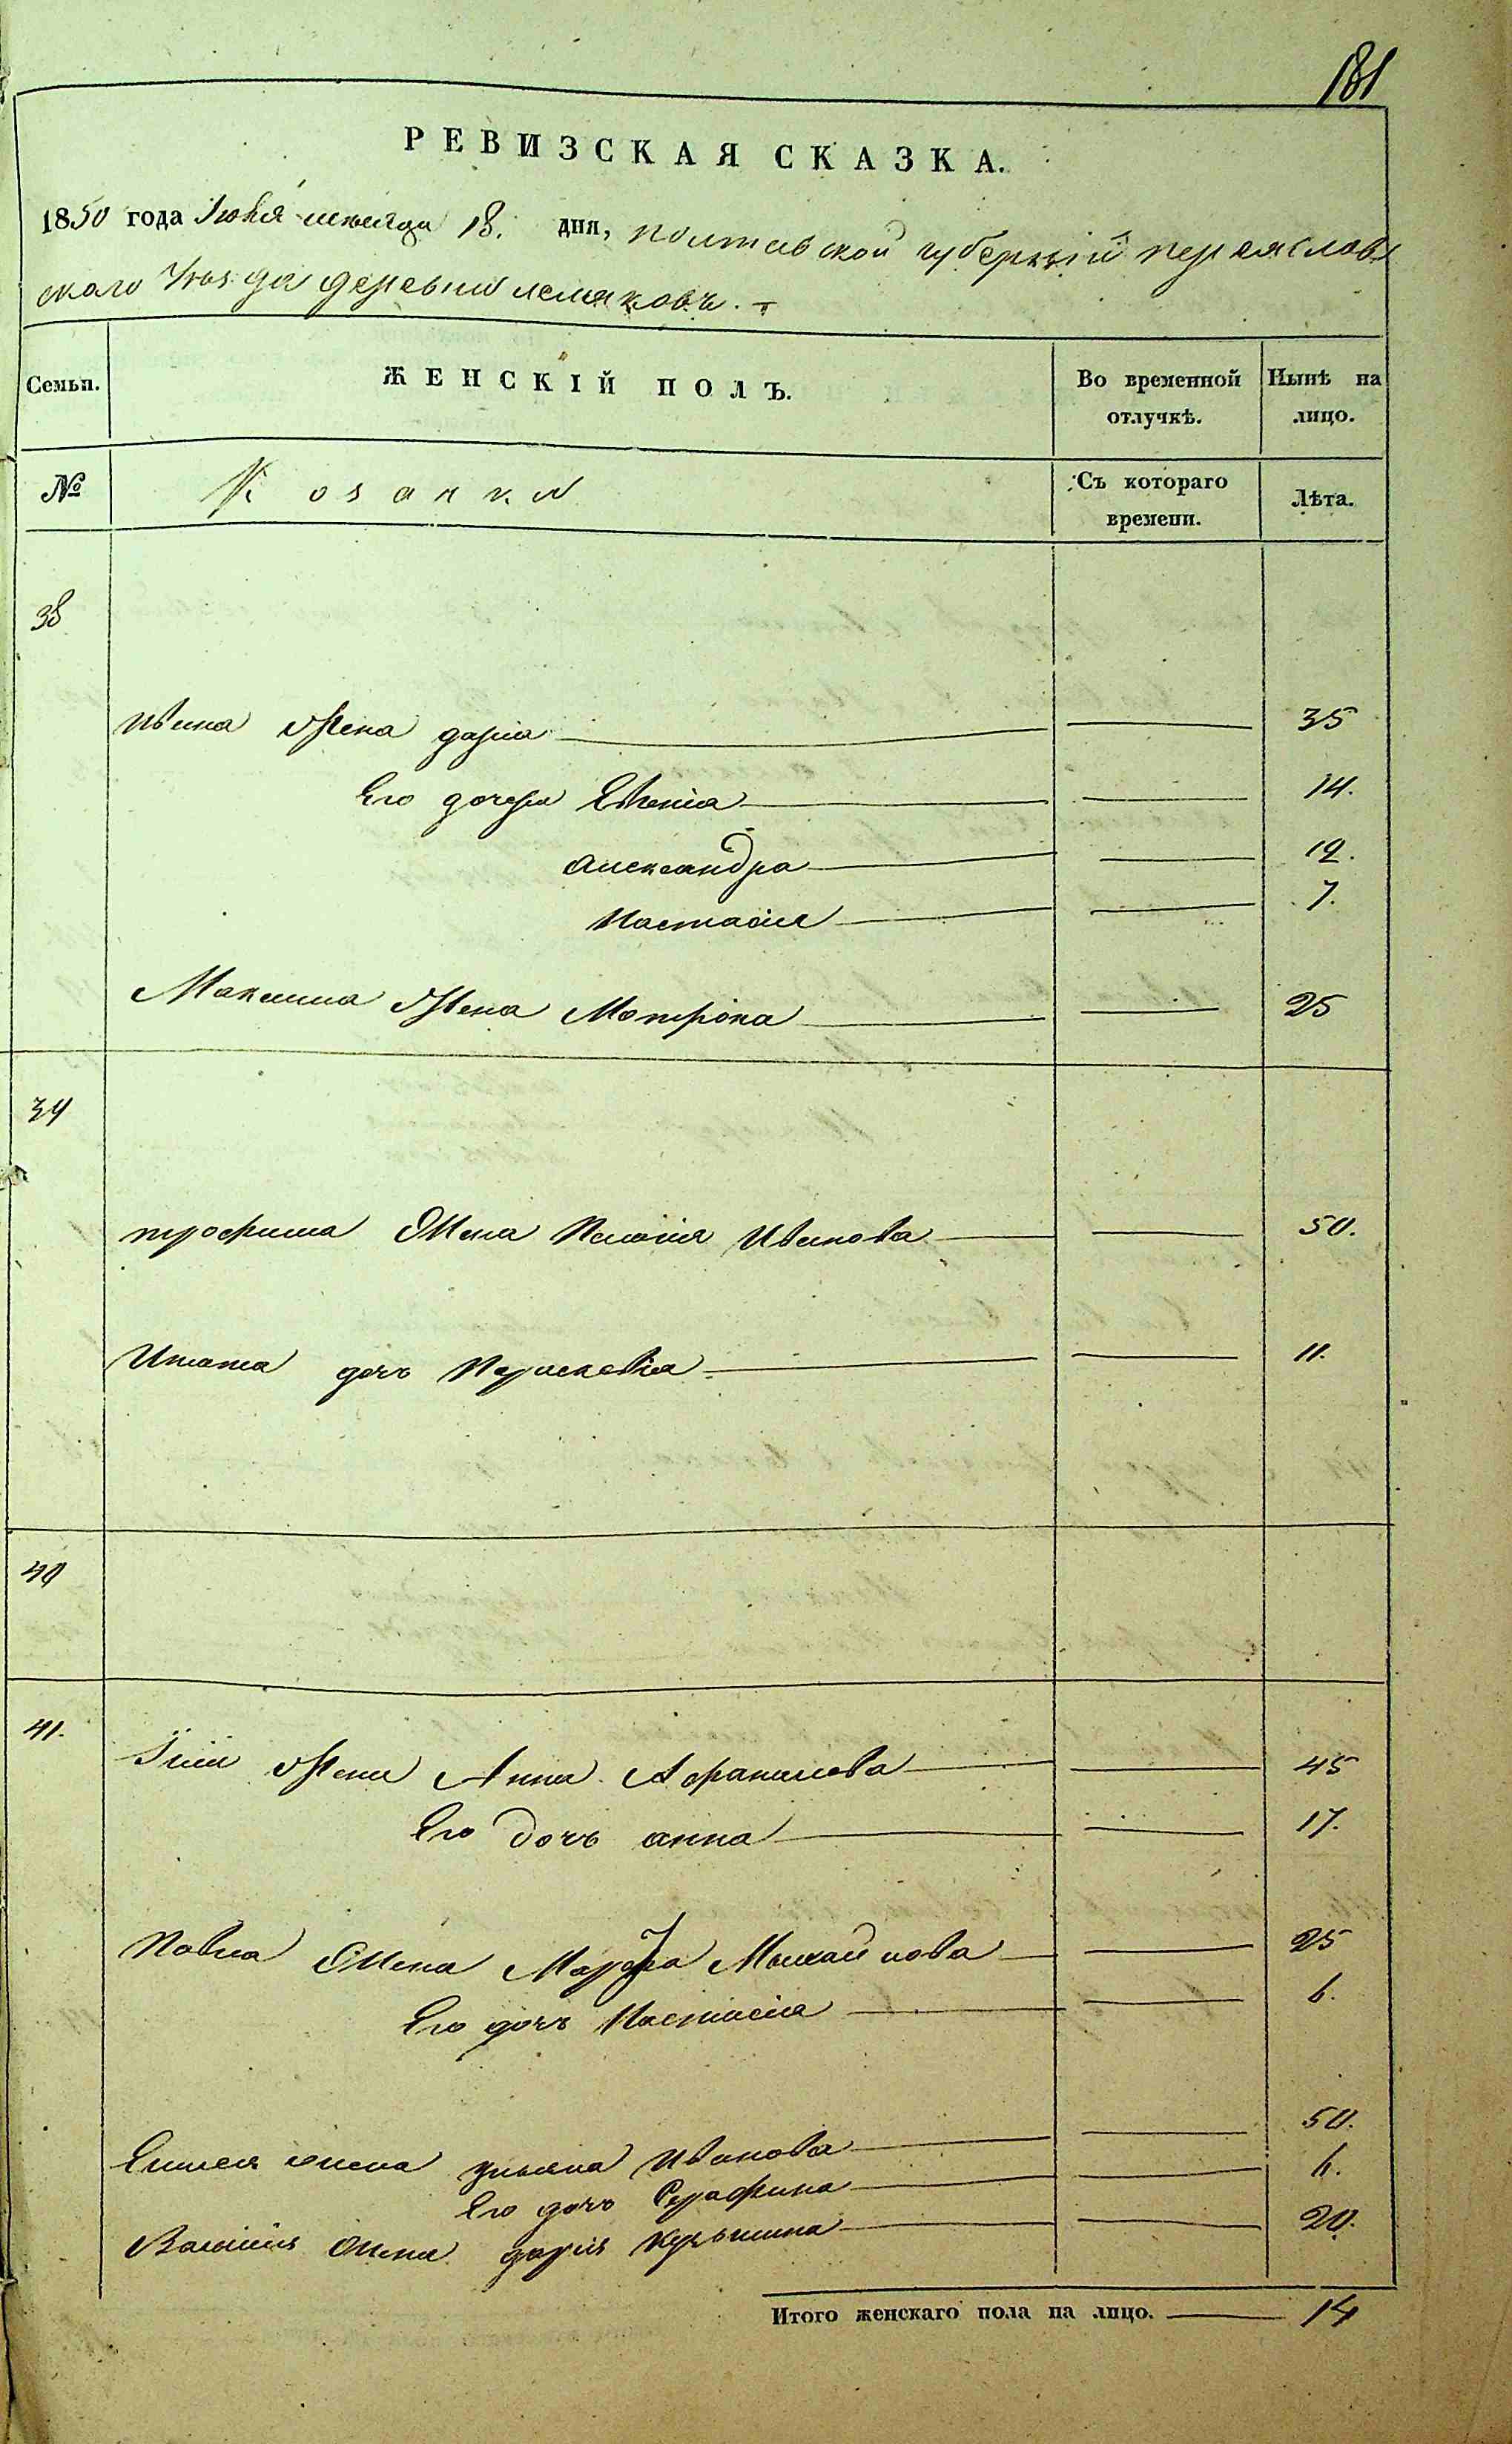 181
РЕВИЗСКАЯ СКАЗКА.
1850 года Июня месяца 18. дня, полтавской губерніи переяслав
скаго Уѣзда деревни лемяковъ.
Семьи.
ЖЕНСКІЙ ПОЛЪ.
Во временной отлучкѣ.
Нынѣ на лицо.
№
Козачки
Съ котораго времени.
Лѣта.
38
Ивана Жена дарія 35
Его дочери Евгенія 14.
александра 12.
Настасія 7.
Максима Жена Мотрона 25
39
трофима Жена Иванова 50.
Игната дочь Параскевія 11.
40
41.
Жена Анна 45
Его дочь анна 17.
Павла Жена Марфа Михайлова 25
Его дочь Настасія 6.
жена ульяна Иванова 50.
Его дочь Серафина 6.
Жена дарія 20.
Итого женскаго пола на лицо. 14